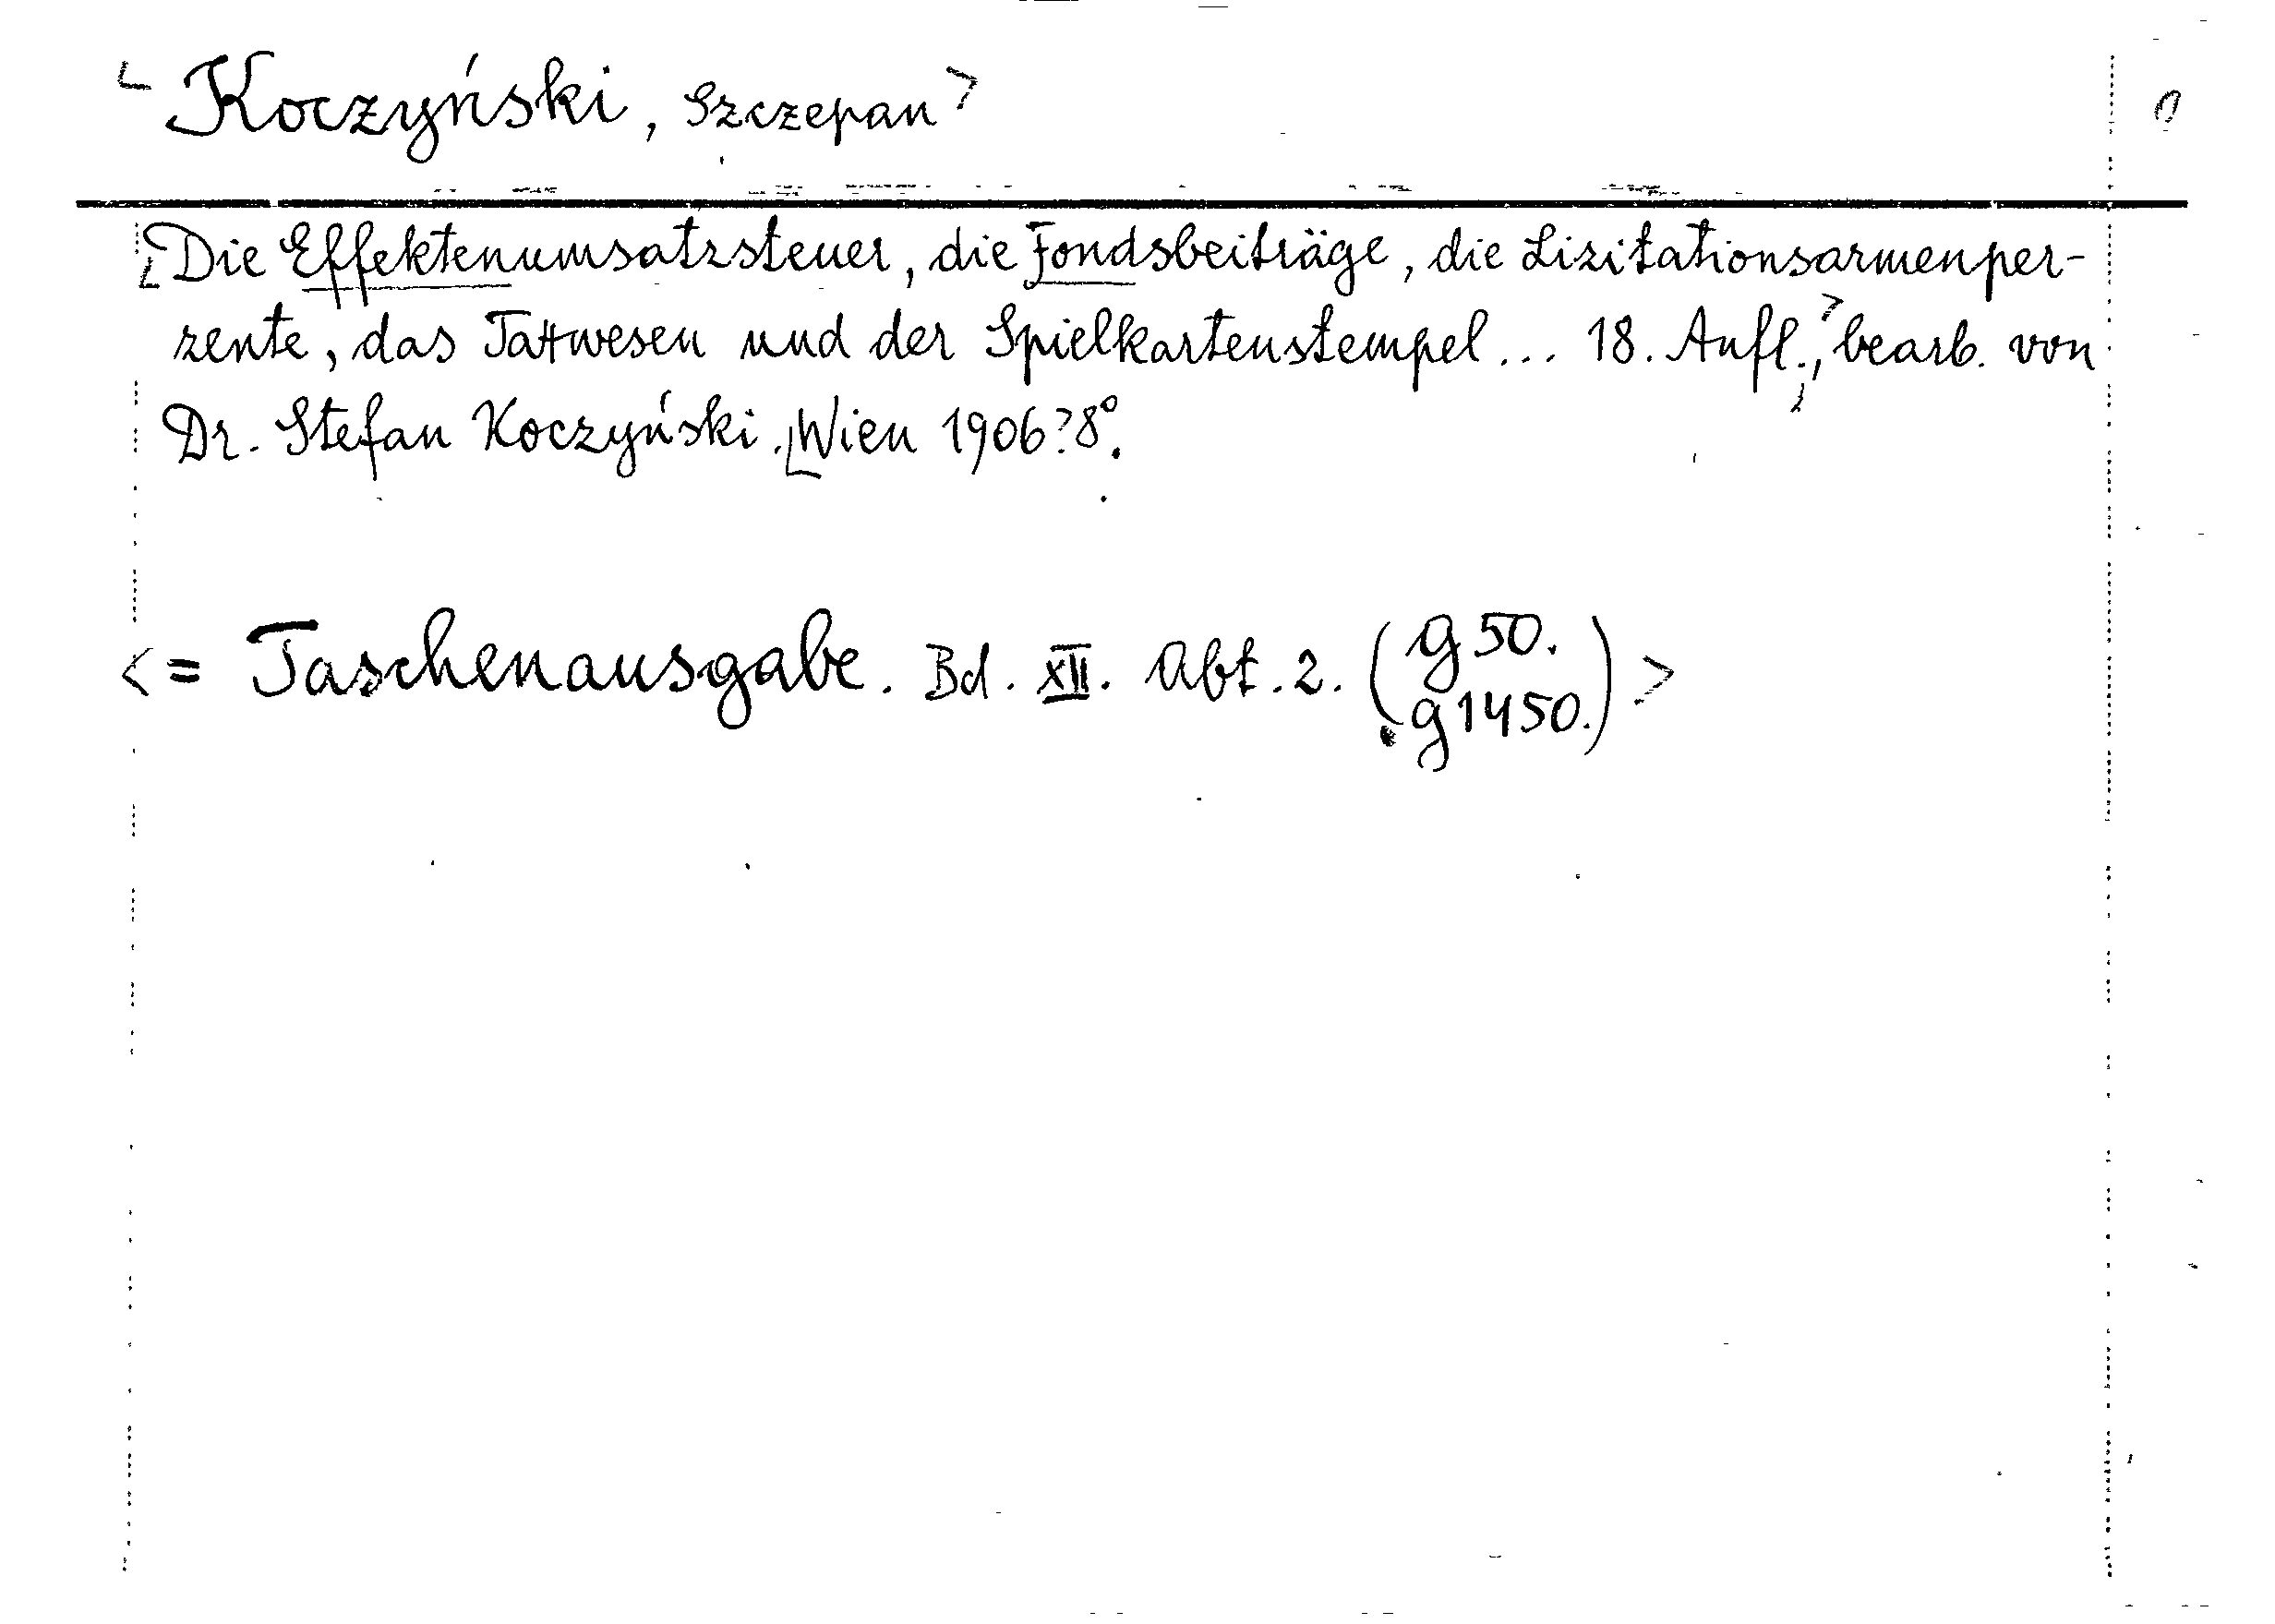 < Koczyński, Szczepan >
Die Effektenumsatzsteuer, die Fondsbeiträge, die Lizitationsarmenper-
zente, das Taxwesen und der Spielkartenstempel ... 18. Aufl., bearb. von
Dr. Stefan Koczyński. Wien 1906. 8°.
<= Taschenausgabe. Bd. XII. Abt. 2. (g 50.
g 1450.) >